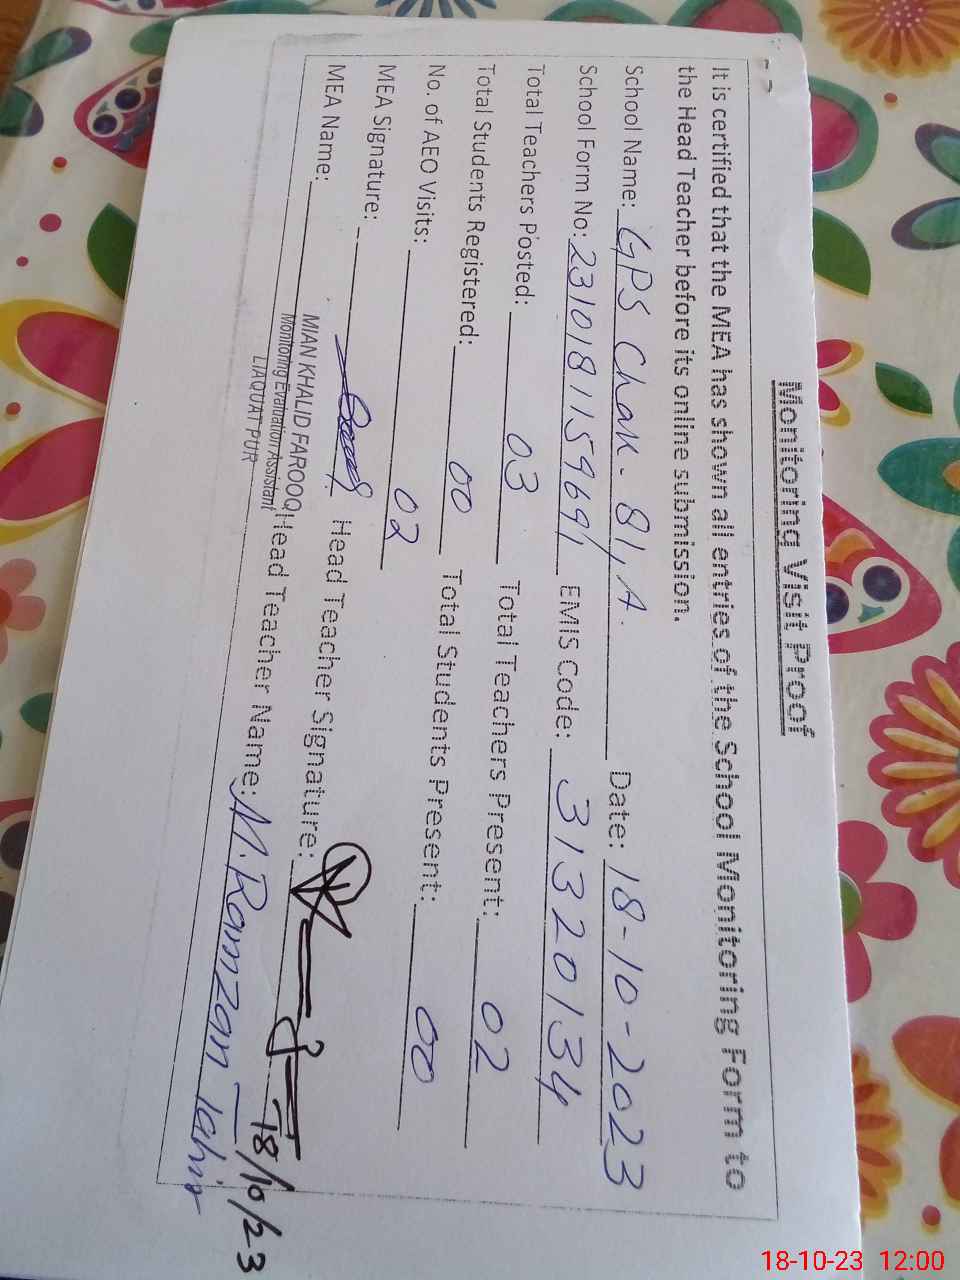 Monitoring Visit Proof
It is certified that the MEA has shown all entries of the School Monitoring Form to
the Head Teacher before its online submission.
School Name: GPS Chak. 81, A. Date: 18-10-2023
School Form No: 2310181159691 EMIS Code: 31320134
Total Teachers Posted: 03 Total Teachers Present: 02
Total Students Registered: 00 Total Students Present: 00
No. of AEO Visits: 02
MEA Signature: Head Teacher Signature: 18/10/23
MEA Name: MIAN KHALID FAROOQ Head Teacher Name: M. Ramzan Tahir
Monitoring Evaluation Assistant
LIAQUAT PUR
18-10-23 12:00